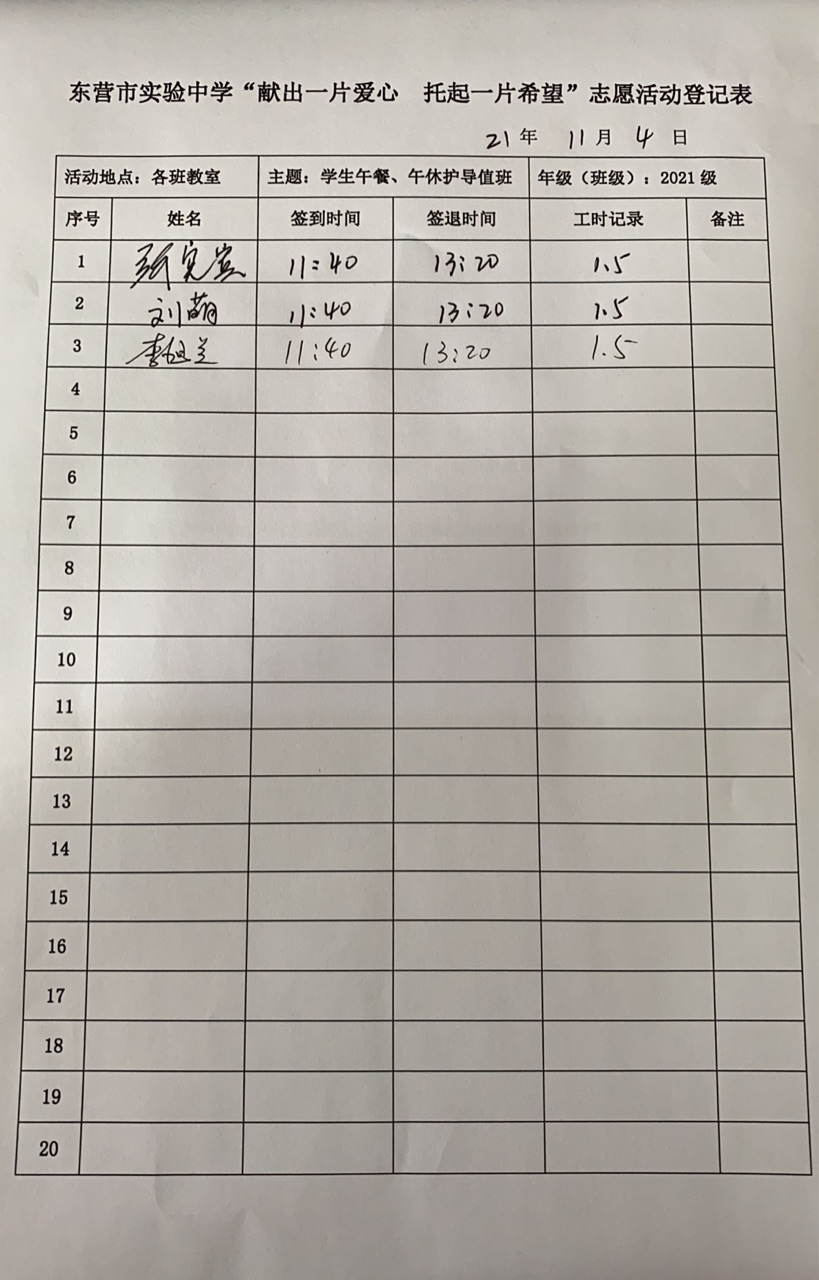 东营市实验中学“献出一片爱心 托起一片希望”志愿活动登记表
21年 11月 4日
活动地点：各班教室 主题：学生午餐、午休护导值班 年级（班级）：2021 级
序号 姓名 签到时间 签退时间 工时记录 备注
1 11:40 13:20 1.5
2 刘萌 11:40 13:20 1.5
3 11:40 13:20 1.5
4
5
6
7
8
9
10
11
12
13
14
15
16
17
18
19
20